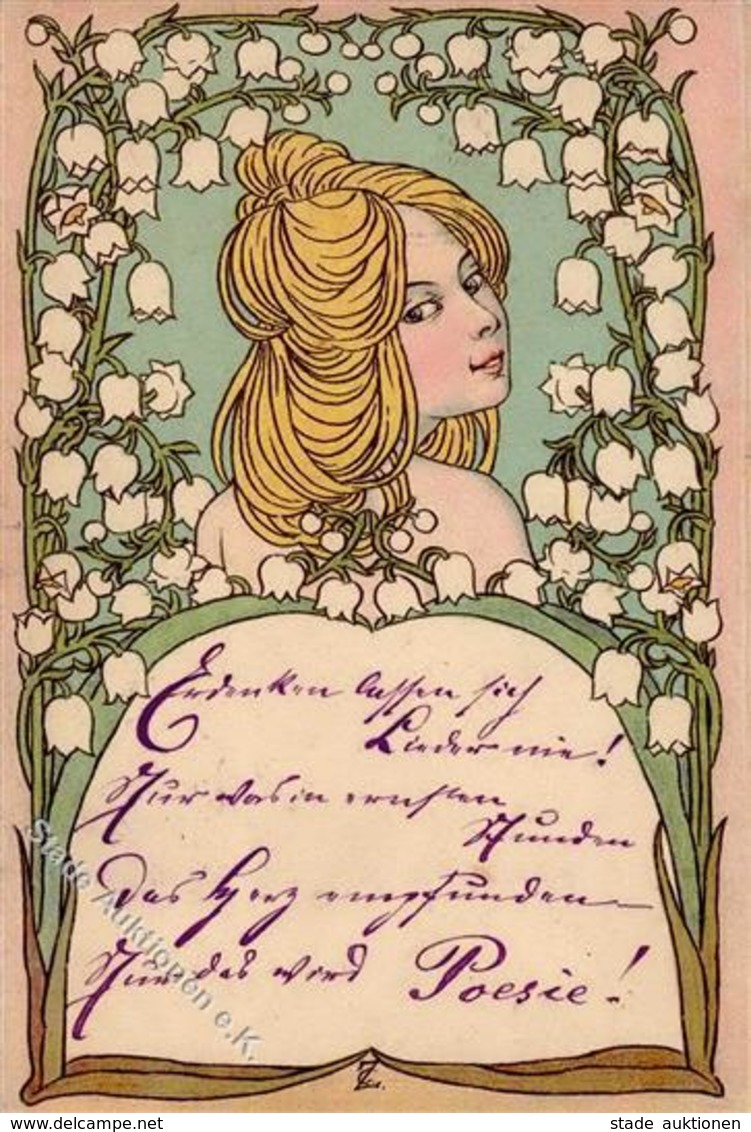 Erdenken lassen sich
Lieder nie!
Nur was in ernsten
Stunden
Das Herz empfunden—
Nur das wird Poesie!
Stade Auktionen e.K.
www.delcampe.net
stade_auktionen